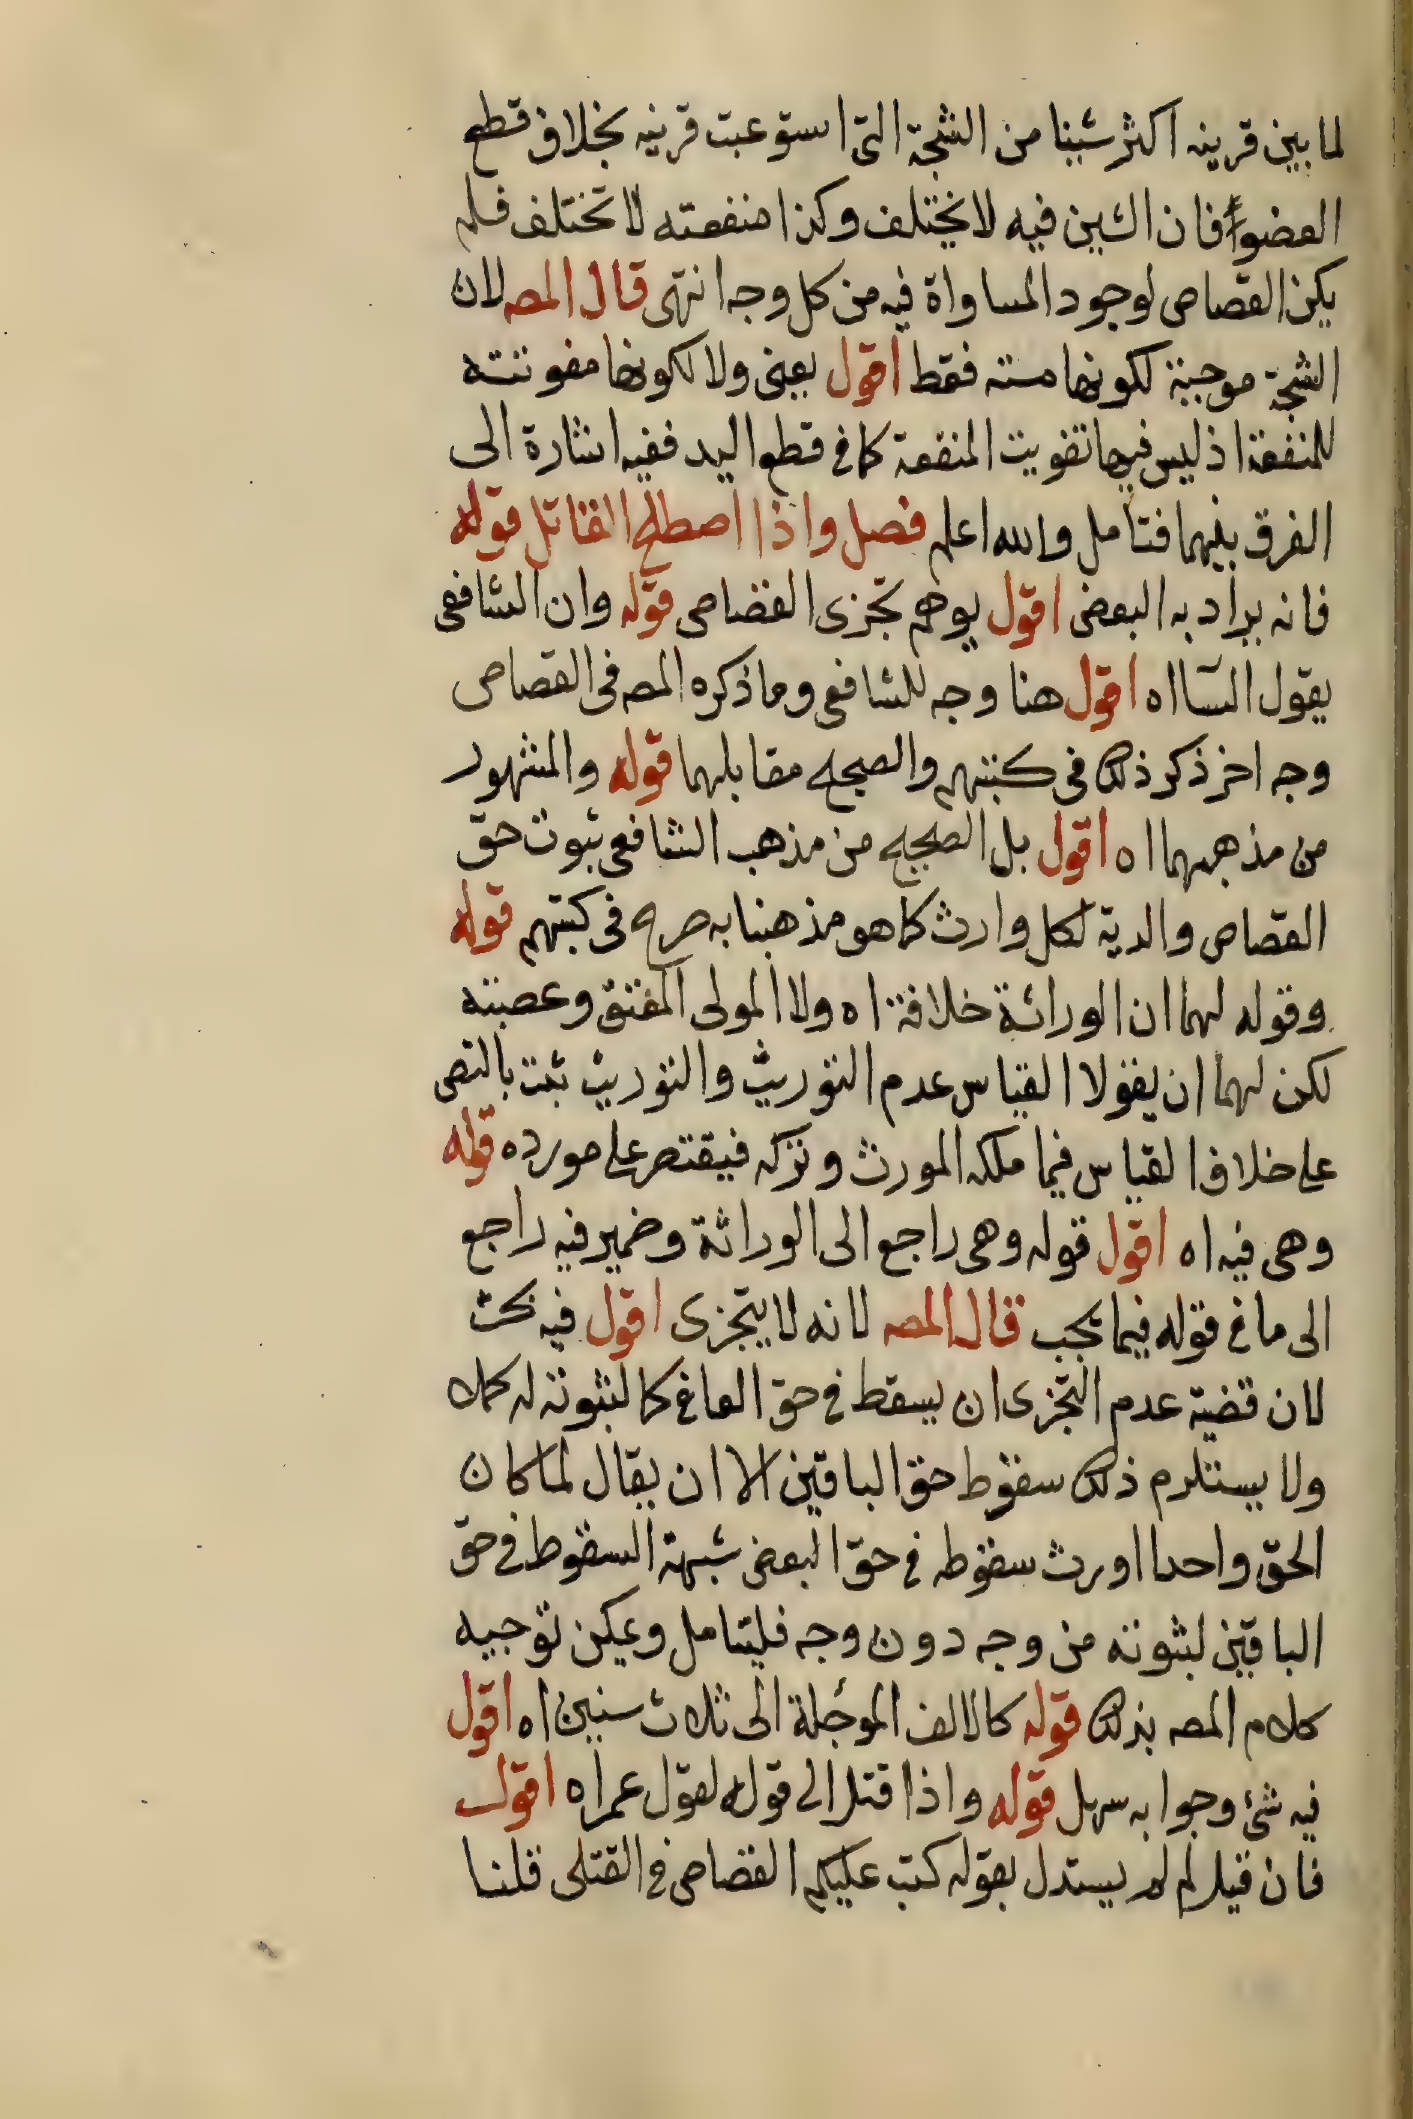 لما بين قرينه اكثر شينا من الشجة التى استوعبت قرنيه بخلاف قطع
العضو فان الشين فيه لا يختلف وكذا منفعته لا تختلف فلم
يكن القصاص لوجود المساواة فيه من كل وجه انتهى قال المصه لان
الشجة موجبة لكونها مسته فقط اقول يعنى ولا لكونها مفوتته
للمنفعة اذ ليس فيها تفويت المنفعة كما فى قطع اليد ففيه اشارة الى
الفرق بينهما فتامل والله اعلم فصل واذا اصطلح القاتل قوله
فانه يراد به البعض اقول يوهم تجزى القصاص قوله وان الشافعى
يقول الشا اه اقول هنا وجه للشافعى وما ذكره المصه فى القصاص
وجه اخر ذكر ذلك فى كتبهم والصحيح مقابلهما قوله والمشهور
من مذهبهما اه اقول بل الصحيح من مذهب الشافعى ثبوت حق
القصاص والدية لكل وارث كما هو مذهبنا به صرح فى كتبهم قوله
وقوله لهما ان الوراثة خلافة اه ولا المولى المعتق وعصبته
لكن لهما ان يقولا القياس عدم التوريث والتوريث ثبت بالنص
على خلاف القياس فيما ملكه المورث وتركه فيقتصر على مورده قوله
وهى فيه اه اقول قوله وهى راجع الى الوراثة وضمير فيه راجع
الى ما فى قوله فيما يجب قال المصه لانه لا يتجزى اقول فيه بحث
لان قضية عدم التجزى ان يسقط فى حق العافى كالثبوته له كملا
ولا يستلزم ذلك سقوط حق الباقين الا ان يقال لما كان
الحق واحدا اورث سقوطه فى حق البعض شبهة السقوط فى حق
الباقين لثبوته من وجه دون وجه فليتامل ويمكن توجيه
كلام المصه بذلك قوله كالالف الموجلة الى ثلاث سنين اه اقول
فيه شئ وجوابه سهل قوله واذا قتل الى قوله لقول عمر اه اقول
فان قيل لم لم يستدل بقوله كتب عليكم القصاص فى القتلى قلنا